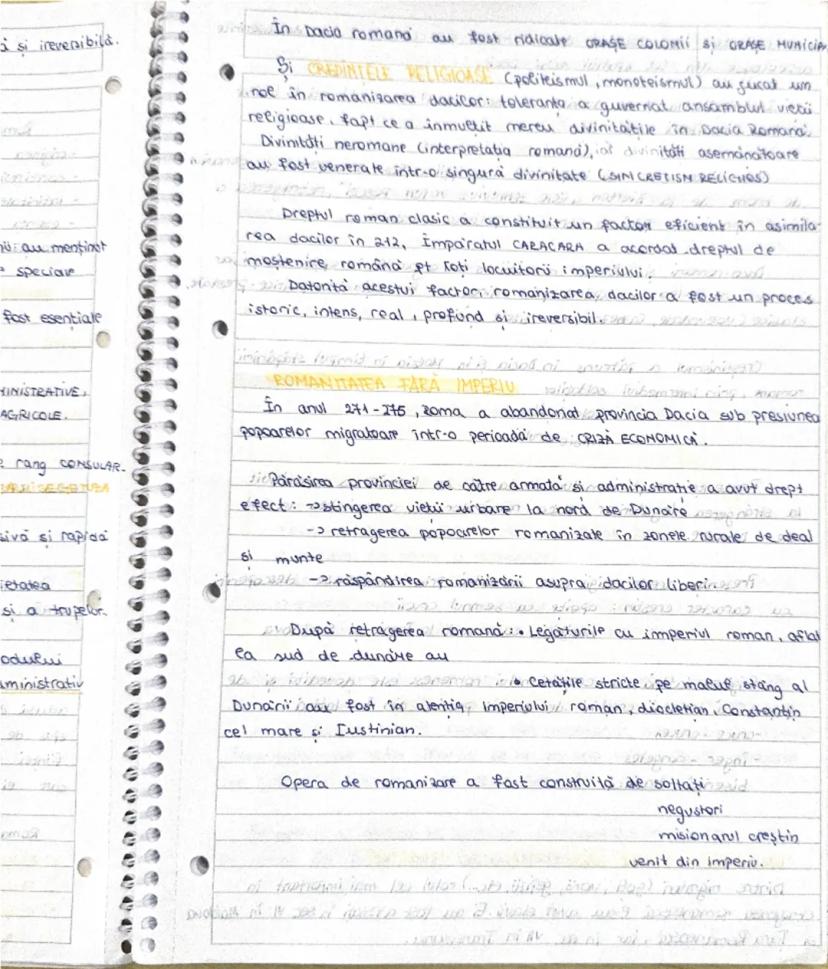 ă și ireversibilă.
au menținut
speciale
fost esențiale
AGRICOLE.
rang CONSULAR.
sivă și rapidă
și a trupelor.
În Dacia romană au fost ridicate ORAȘE COLONII și ORAȘE MUNICIPII
Și CREDINȚELE RELIGIOASE (politeismul, monoteismul) au jucat un
rol în romanizarea dacilor: toleranța a guvernat ansamblul vieții
religioase, fapt ce a înmulțit mereu divinitățile în Dacia Romană.
Divinități neromane (interpretația romană), iar divinități asemănătoare
au fost venerate într-o singură divinitate (SINCRETISM RELIGIOS)
Dreptul roman clasic a constituit un factor eficient în asimila-
rea dacilor în 212, Împăratul CARACARA a acordat dreptul de
moștenire română pt toți locuitorii imperiului.
Datorită acestui factor, romanizarea dacilor a fost un proces
istoric, intens, real, profund și ireversibil.
ROMANITATEA FĂRĂ IMPERIU
În anul 271-275, Roma a abandonat provincia Dacia sub presiunea
popoarelor migratoare într-o perioadă de CRIZĂ ECONOMICĂ.
Părăsirea provinciei de către armată și administrație a avut drept
efect: -> stingerea vieții urbare la nord de Dunăre
-> retragerea popoarelor romanizate în zonele rurale de deal
și munte
-> răspândirea romanizării asupra dacilor liberi
După retragerea romană: • Legăturile cu imperiul roman, aflat
la sud de dunăre au
• Cetățile stricte pe malul stâng al
Dunării au fost în atenția Imperiului roman, diocletian, Constantin
cel mare și Iustinian.
Opera de romanizare a fost construită de soltați
negustori
misionarul creștin
venit din imperiu.